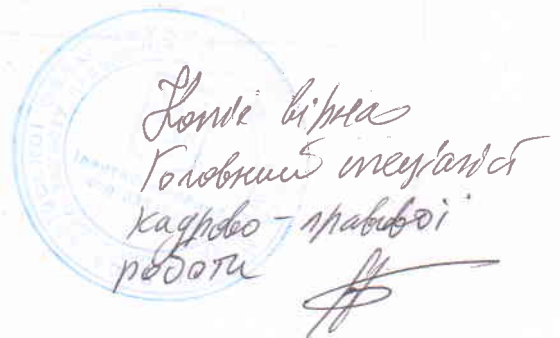 Копія вірна
Головний спеціаліст
кадрово-правової
роботи